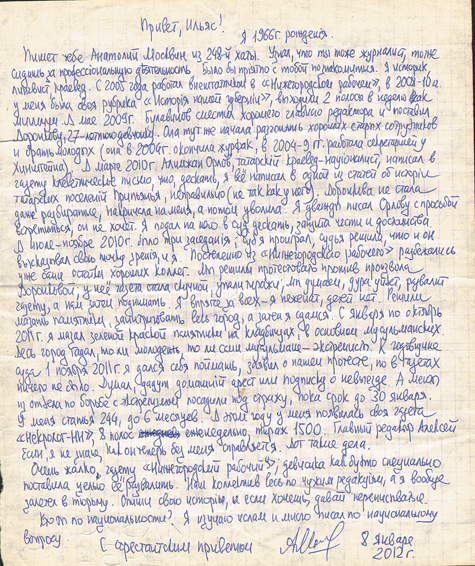 Привет, Ильяс!
Я 1966г рождения.
Пишет тебе Анатолий Москвин из 248-й хаты. Узнал, что ты тоже журналист, тоже
сидишь за профессиональную деятельность. Было бы приятно с тобой познакомиться. Я историк,
краевед. С 2005 года работал внештатником в «Нижегородском рабочем», в 2008-10гг
у меня была своя рубрика «История нашей губернии», выходили 2 полоса в неделю
В мае 2009г. Булавинов сместил хорошего главного редактора и поставил
Дорошкову, 27-летнюю девчонку. Она тут же начала разгонять хороших старых сотрудников
и брать молодых (она в 2004г. окончила журфак, в 2004-9 гг. работала секретарем у
). В марте 2010г. Алимжан Орлов, татарский краевед-националист, написал в
газету клеветническое письмо, что, дескать, я всё написал в одной из статей об истории
татарских поселений Припьянья, неправильно (не так как у него). Дорошкова не стала
даже разбираться, накричала на меня, а потом уволила. Я дважды писал Орлову с просьбой
встретиться, он не хочет. Я подал на него в суд дескать, защита чести и достоинства.
В июле-ноябре 2010г. было три заседания; суд я проиграл, судья решила, что и он
высказывал свою точку зрения, и я. Постепенно из «Нижегородского рабочего» разбежались
уже было остатки хороших коллег. Мы решили протестовать против произвола
Дорошковой, у неё газета стала скучной, упали тиражи. Мы думаем, дура уйдет, развалит
газету, а нам затем поднимать. Я впрягся за всех – я неженат, детей нет. Решили
мазать памятники, заинтриговать весь город, а затем я сдамся. С января по октябрь
2011г. я мазал зеленой краской памятники на кладбищах в основном мусульманских.
Весь город гадал, то ли молодежь, то ли псих мусульманин-экстремист. К годовщине
суда 1 ноября 2011г я дался себя поймать, заявил о нашем протесте, но в газетах
ничего не было. Думал дадут домашний арест или подписку о невыезде. А меня
из отдела по борьбе с экстремизмом посадили под стражу, пока срок до 30 января.
У меня статья 244, до 6 месяцев. В этом году у меня появилась своя газета
«Некролог-НН», 8 полос еженедельно, тираж 1500. Главный редактор Алексей
Есин, я не знаю, как он теперь без меня справляется. Вот такие дела.
Очень жалко, газету «Нижегородский рабочий», девчонка как будто специально
поставила целью её развалить. Наш коллектив весь по чужим редакциям, а я вообще
залетел в тюрьму. Опиши свою историю, и если хочешь, давай переписываться.
Кто ты по национальности? Я изучаю ислам и много писал по национальному
вопросу
С арестантским приветом
8 января
2012г.